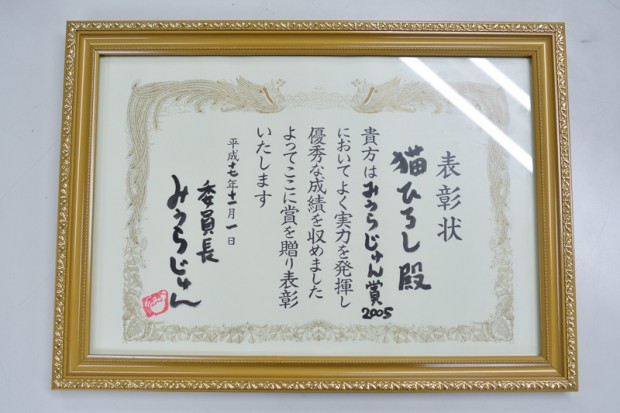 表彰状
猫ひろし殿
貴方はみうらじゅん賞2005
においてよく実力を発揮し
優秀な成績を収めました
よってここに賞を贈り表彰
いたします
平成十七年十二月一日
委員長
みうらじゅん